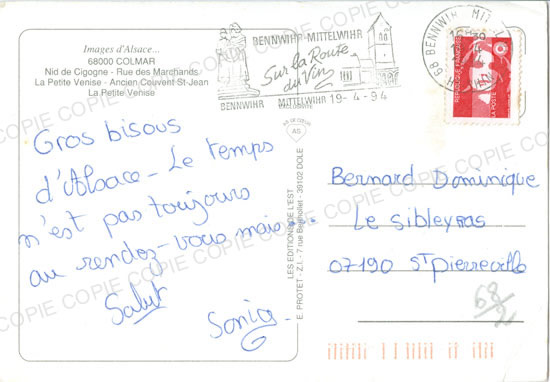 Images d'Alsace...
68000 COLMAR
Nid de Cigogne - Rue des Marchands
La Petite Venise - Ancien Couvent St-Jean
La Petite Venise
BENNWIHR-MITTELWIHR
Sur la Route
du Vin
BENNWIHR MITTELWIHR 19-4-94
68 BENNWIHR MIT
REPUBLIQUE FRANÇAISE
LA POSTE
Gros bisous
d'Alsace - Le temps
n'est pas toujours
au rendez-vous mais...
Salut
Sonia
AS DE COEUR
AS
LES EDITIONS DE L'EST
E. PROTET - Z.I. - 7 rue Berthollet - 39102 DOLE
Bernard Dominique
Le Sibleyras
07190 St Pierreville
COPIE COPIE COPIE